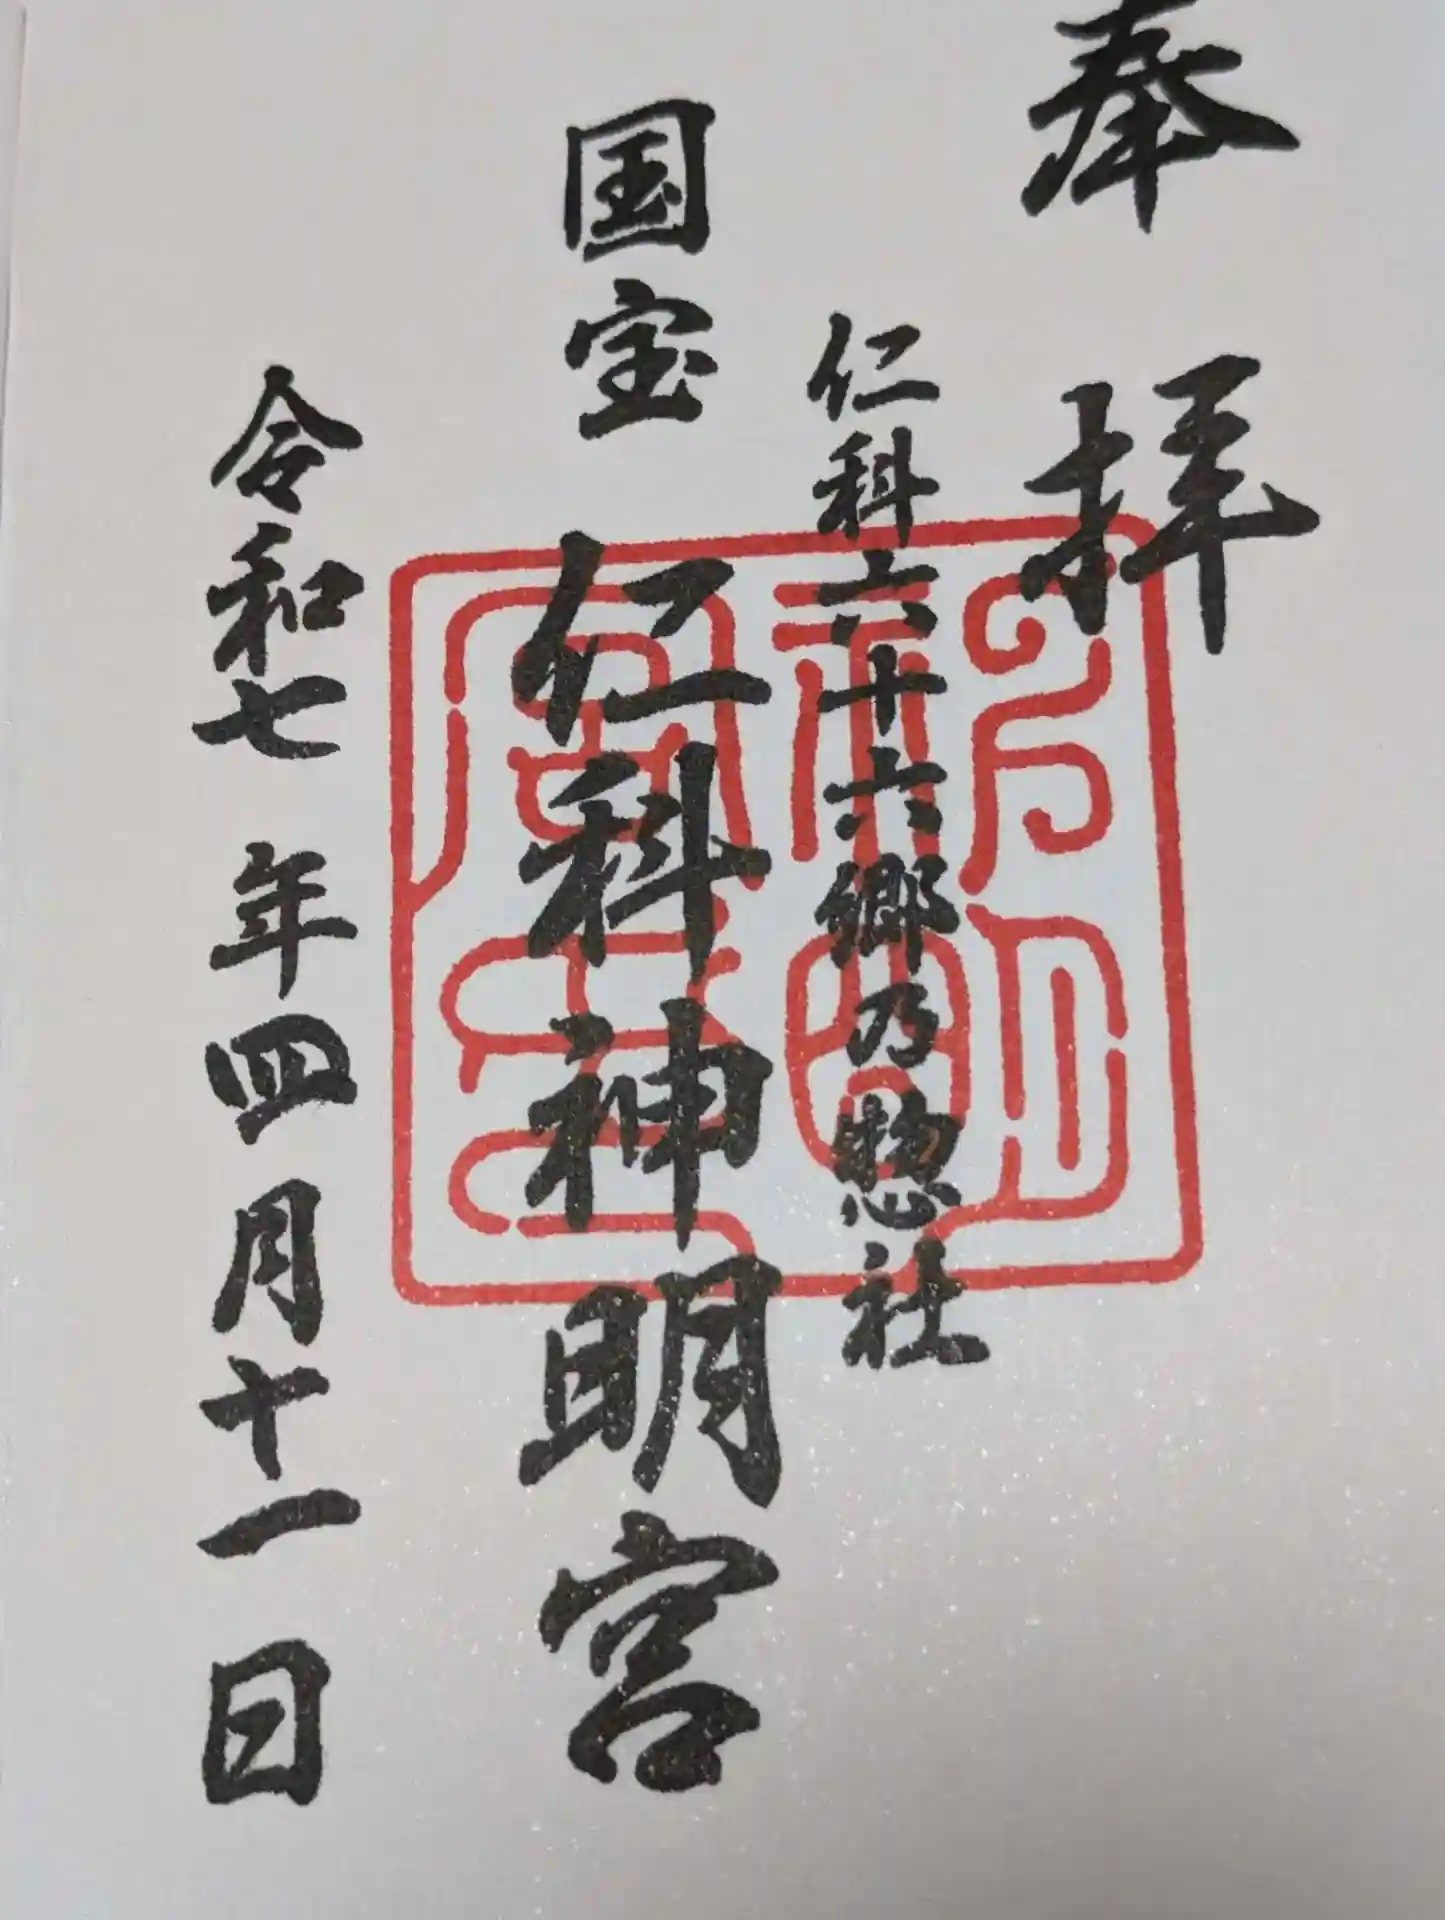 奉拝
仁科六十六郷乃惣社
国宝 仁科神明宮
令和七年四月十一日